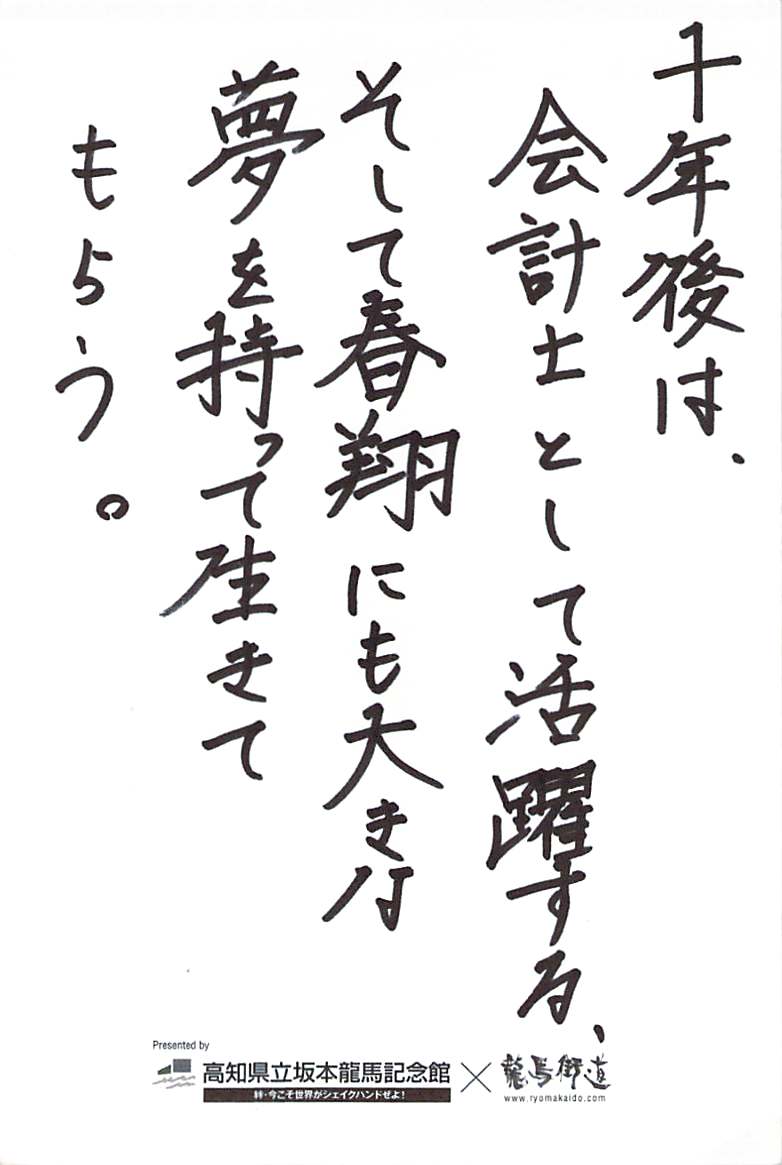 十年後は、
会計士として活躍する、
そして春翔にも大きな
夢を持って生きて
もらう。
Presented by
高知県立坂本龍馬記念館 × 龍馬街道
絆・今こそ世界がシェイクハンドぜよ!
www.ryomakaido.com